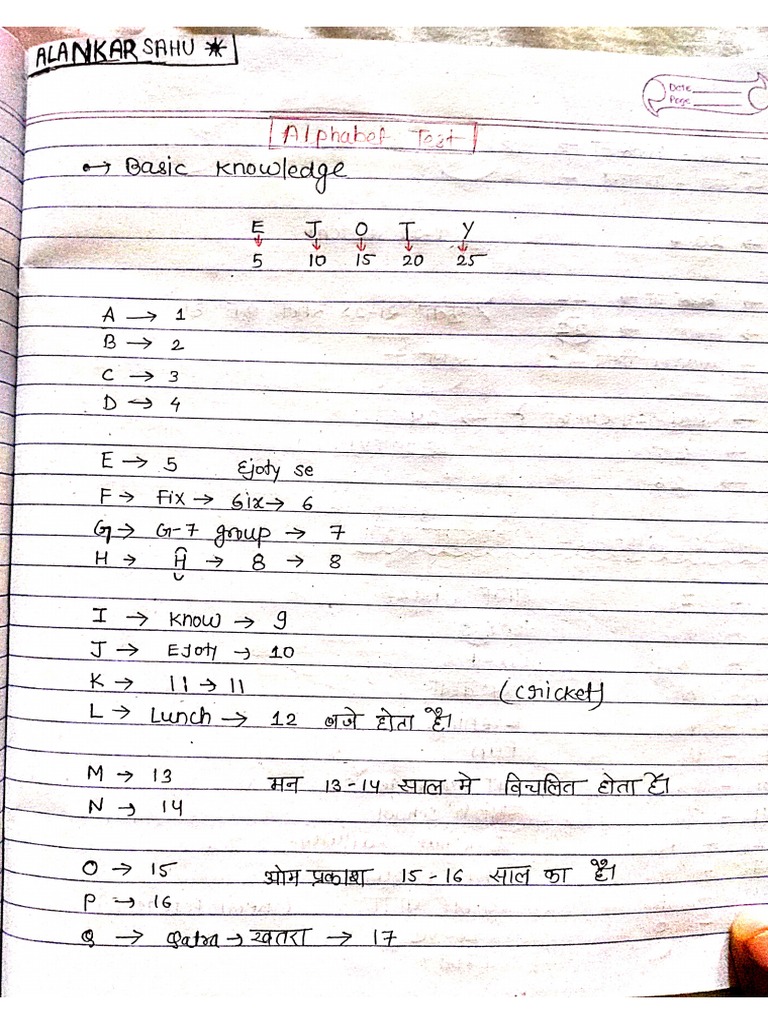 ALANKAR SAHU *
Date
Page
Alphabet Test
↦ Basic Knowledge
E J O T Y
↓ ↓ ↓ ↓ ↓
5 10 15 20 25
A → 1
B → 2
C → 3
D → 4
E → 5 Ejoty se
F → Fix → Six → 6
G → G-7 group → 7
H → H → 8 → 8
I → Know → 9
J → EJoty → 10
K → 11 → 11 (Cricket)
L → Lunch → 12 बजे होता है।
M → 13 मन 13-14 साल मे विचलित होता है।
N → 14
O → 15 ओम प्रकाश 15-16 साल का है।
P → 16
Q → Qatra → खतरा → 17